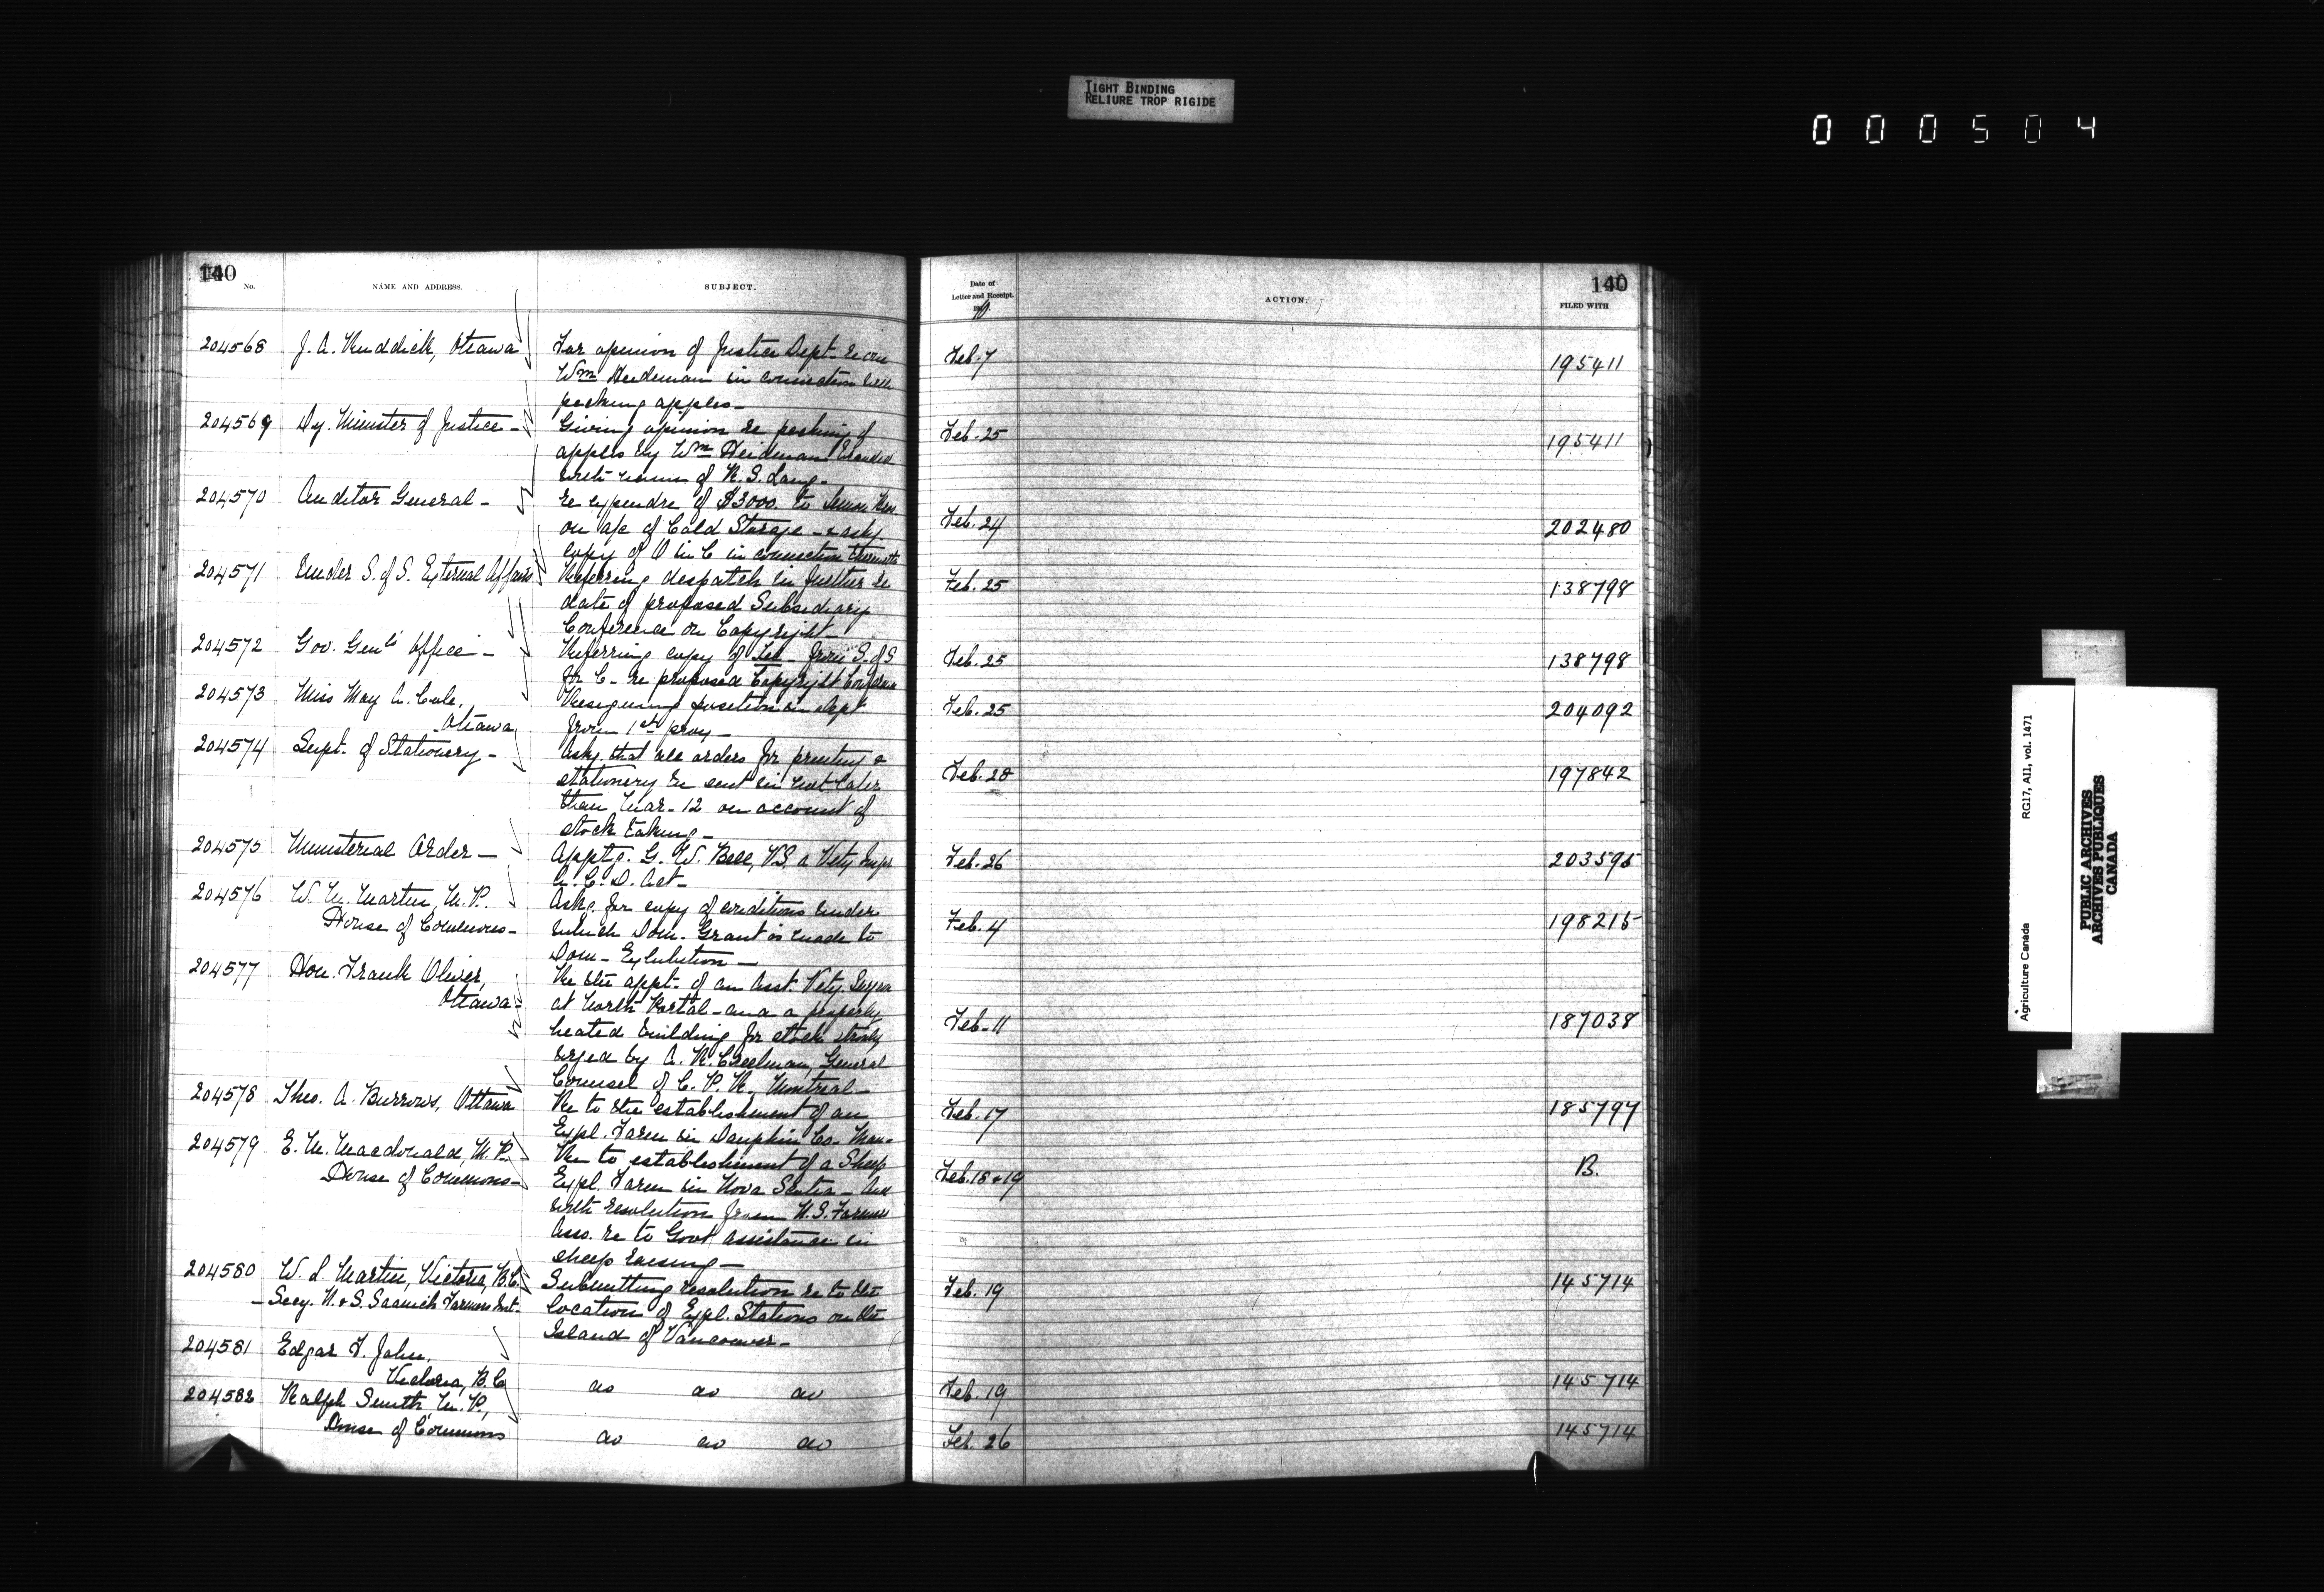 TIGHT BINDING
RELIURE TROP RIGIDE
000504
140
No. NAME AND ADDRESS. SUBJECT.
204568 J. A. Ruddick, Ottawa For opinion of Justice Dept. re
Wm Heideman in connection with
packing apples_
204569 Dy. Minister of Justice - Giving opinion re packing of
apples by Wm Heideman branded
with name of R. S. Lang-
204570 Auditor General - re expendre of $3000. to
on a/c of Cold Storage - & asks
copy of O in C in connection therewith
204571 Under S. of S. External Affairs Referring despatch in further re
date of proposed Subsidiary
Conference on Copyright_
204572 Gov. Genl's Office - Referring copy of Tel - from S. of S
for C - re proposed Copyright Conference
204573 Miss May A. Cole, Resigning position in Dept
Ottawa from 1st prox_
204574 Supt. of Stationery - Asks that all orders for printing &
stationery be sent in not later
than Mar. 12 on account of
stock taking_
204575 Ministerial Order - Apptg. G. W. Bell, V.S. a Vety Inspr
A. C. D. Act_
204576 W. M. Martin, M. P. Asks for copy of conditions under
House of Commons- which Dom. Grant is made to
Dom - Exhibition_
204577 Hon. Frank Oliver, Re the appt- of an Asst. Vety.
Ottawa- at North Portal - and a properly
heated building for stock strongly
urged by A. R. Creelman, General
Counsel of C. P. R., Montreal_
204578 Theo. A. Burrows, Ottawa Re to the establishment of an
Expl. Farm in Dauphin Co. Man-
204579 E. M. Macdonald, M. P. Re to establishment of a Sheep
House of Commons- Expl. Farm in Nova Scotia -
with resolution from N. S. Farmers
Asso. re to Govt assistance in
sheep raising_
204580 W. L. Martin, Victoria, B.C. Submitting resolution re to the
-Secy. N. & S. Saanich Farmers Inst- location of Expl. Stations on the
Island of Vancouver-
204581 Edgar F. John,
Victoria, B. C. do do do
204582 Ralph Smith, M. P.,
House of Commons do do do
Date of
Letter and Receipt.
1910
ACTION.
140
FILED WITH
Feb. 7 195411
Feb. 25 195411
Feb. 24 202480
Feb. 25 138798
Feb. 25 138798
Feb. 25 204092
Feb. 28 197842
Feb. 26 203595
Feb. 4 198215
Feb. 11 187038
Feb. 17 185797
Feb. 18 & 19 B.
Feb. 19 145714
Feb. 19 145714
Feb. 26 145714
Agriculture Canada RG17, AII, vol. 1471
PUBLIC ARCHIVES
ARCHIVES PUBLIQUES
CANADA